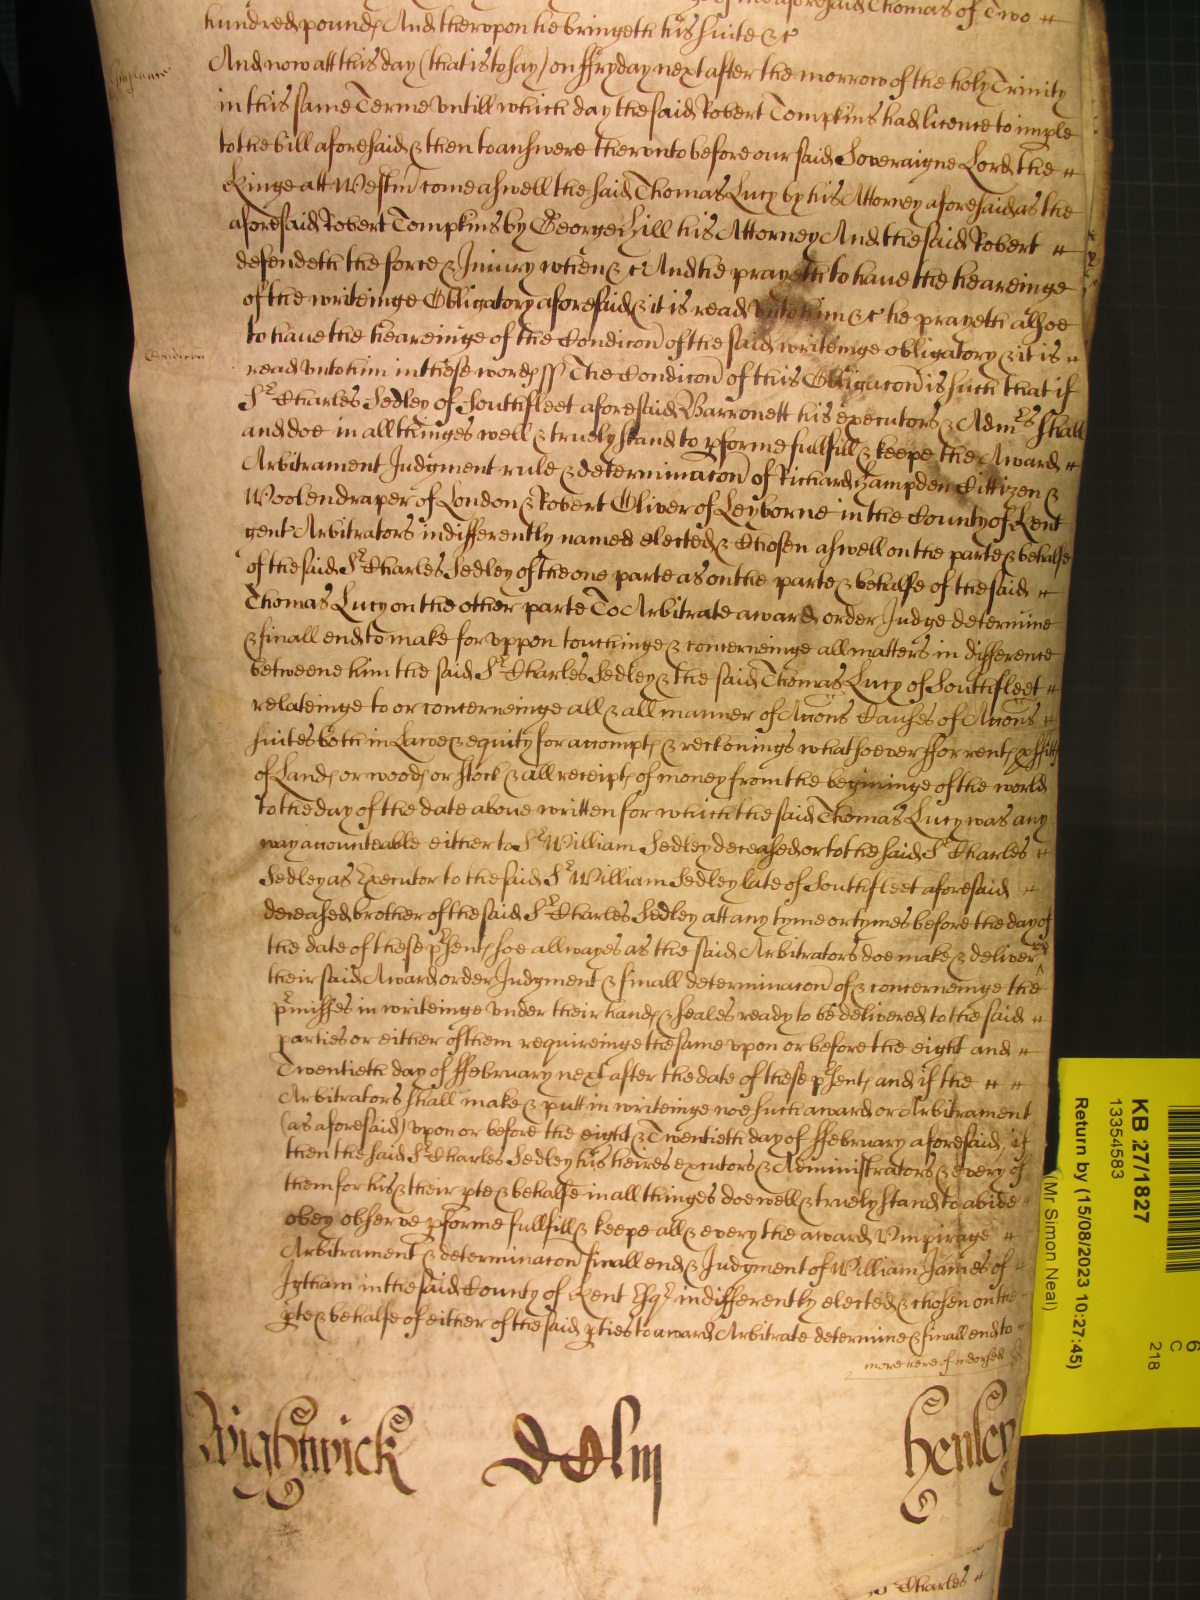 of the aforesaid Thomas of Two
hundred pound And therupon he bringeth his suite &c
Implance
And now att this day (that is to say) on ffryday next after the morrow of the holy Trinity
in this same Terme Untill which day the said Robert Tompkins had licence to imple
to the bill aforesaid & then to answere therunto before our said Soveraigne Lord the
Kinge att Westm come aswell the said Thomas Lucy by his Attorney aforesaid as the
aforesaid Robert Tompkins by George Hill his Attorney And the said Robert
defendeth the force & Iniury when &c And he prayeth to have the heareinge
of the writeinge Obligatory aforesaid & it is read unto him &c he prayeth alsoe
to have the heareinge of the Condicon of the said writeinge obligatory & it is
Condicon
read unto him in these words ss The Condicon of this Obligacon is such that if
Sr Charles Sedley of Southfleet aforesaid Barronett his executors & Admrs shall
and doe in all thinges well & truely stand to pforme fullfill & keepe the Award
Arbitrament Judgment rule & determinacon of Richard Hampden Cittizen &
Woolendraper of London & Robert Oliver of Leyborne in the County of Kent
gent Arbitrators indifferently named elected & Chosen aswell on the parte & behalfe
of the said Sr Charles Sedley of the one parte as on the parte & behalfe of the said
Thomas Lucy on the other parte To Arbitrate award order Judge determine
& finall end to make for uppon touchinge & concerneinge all matters in difference
betweene him the said Sr Charles Sedley & the said Thomas Lucy of Southfleet
relateinge to or concerneinge all & all manner of Accons Causes of Accons
suites both in Lawe & equity for accompts & reckonings whatsoever ffor rents pffitts
of Lands or woods or stock & all receipts of money from the beginninge of the world
to the day of the date above written for which the said Thomas Lucy was any
way accounteable either to Sr William Sedley deceased or to the said Sr Charles
Sedley as Executor to the said Sr William Sedley late of Southfleet aforesaid
deceased brother of the said Sr Charles Sedley att any tyme or tymes before the day of
the date of these psents soe allwayes as the said Arbitrators doe make & deliver up
their said Award order Judgment & finall determinacon of & concerneinge the
pmisses in writeinge under their hands & seales ready to be delivered to the said
parties or either of them requireinge the same upon or before the eight and
Twentieth day of ffebruary next after the date of these psents and if the
Arbitrators shall make & putt in writeinge noe such award or Arbitrament
(as aforesaid) upon or before the eight & Twentieth day of ffebruary aforesaid if
then the said Sr Charles Sedley his heires executors & Administrators & every of
them for his & their pte & behalfe in all thinges doe well & truely stand to abide
obey observe pforme fullfill & keepe all & every the award Umpirage
Arbitrament & determinacon finall end & Judgment of William James of
Igtham in the said County of Kent Esqr indifferently elected & chosen on the
pte & behalfe of either of the said pties to award Arbitrate determine & finall end to
more here of indorsed
Wightwick Dolm Henley
Charles
KB 27/1827
13354583
Return by (15/08/2023 10:27:45)
(Mr Simon Neal)
6
C
218